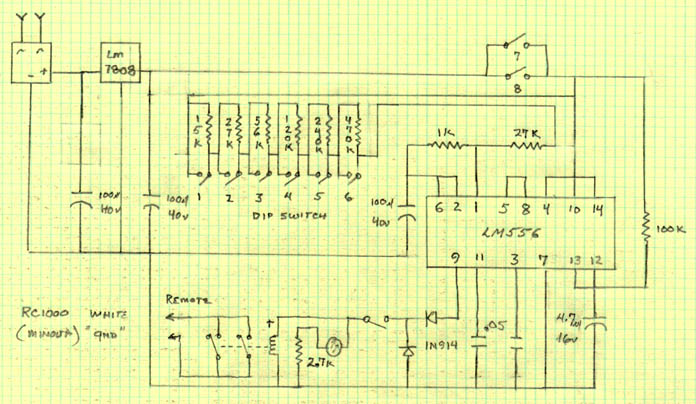 Lm
7808
- +
7
8
15K
27K
56K
120K
240K
470K
1K
27K
100µ
40V
100µ
40V
100µ
40V
1 2 3 4 5 6
DIP SWITCH
6 2 1 5 8 4 10 14
LM556
9 11 3 7 13 12
100K
REMOTE
RC1000 WHITE
(MINOLTA) "GND"
+
2.7K
1N914
.05
4.7µ
16V